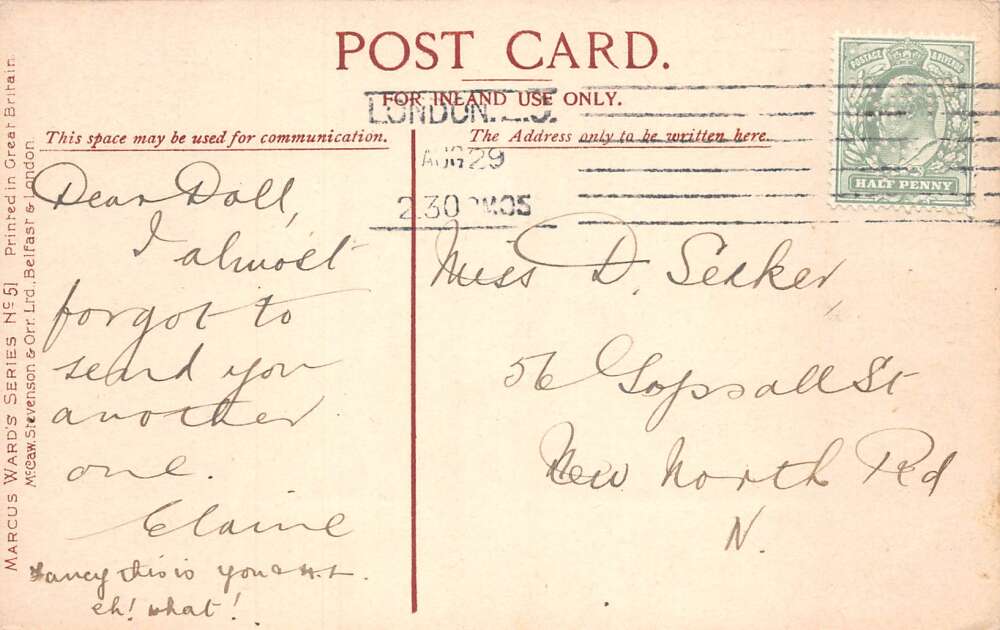 POST CARD.
FOR INLAND USE ONLY.
This space may be used for communication.
The Address only to be written here.
MARCUS WARD'S SERIES Nº 51 Printed in Great Britain.
McCaw, Stevenson & Orr. Ltd., Belfast & London
LONDON.
AUG 29
2.30 PM 05
POSTAGE & REVENUE
HALF PENNY
Dear Doll,
I almost
forgot to
send you
another
one.
Elaine
Fancy this is you &
eh! what!
Miss D. Seaker,
56 Gopsall St
New North Rd
N.